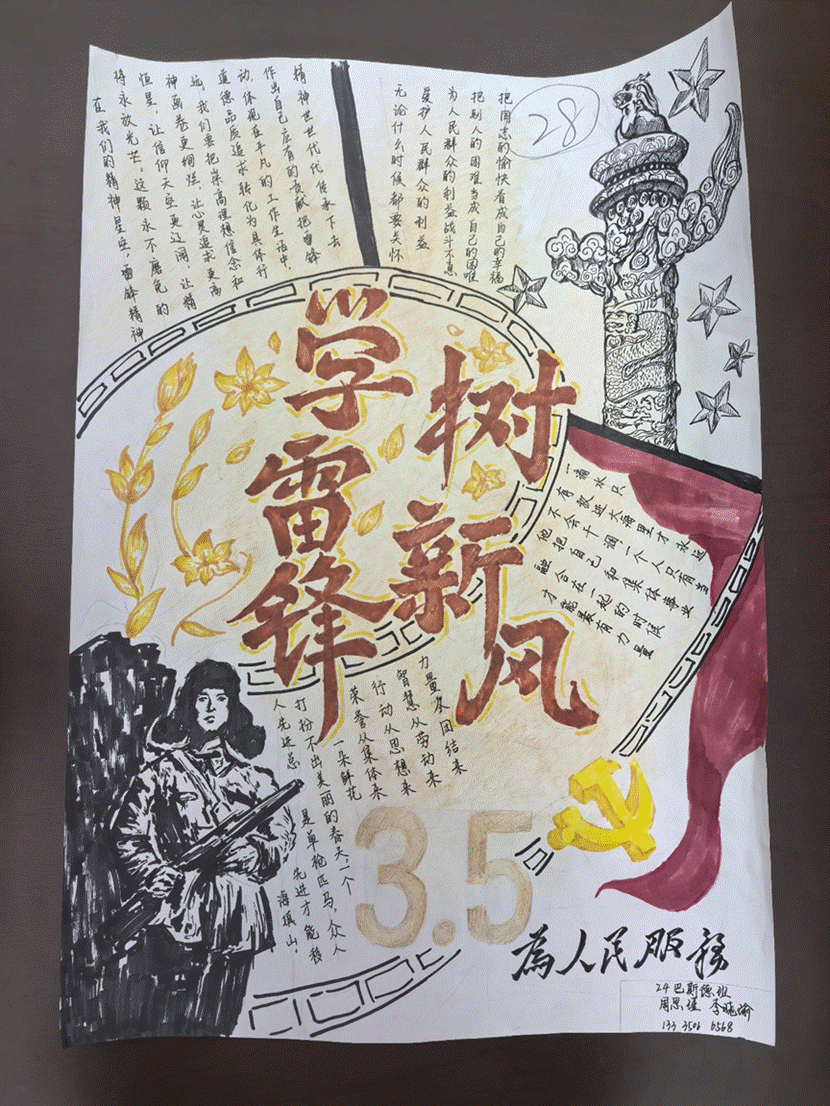 学雷锋
树新风
28
把同志的愉快看成自己的幸福
把别人的困难当成自己的困难
为人民群众的利益战斗不息
爱护人民群众的利益
无论什么时候都要关怀
精神世世代代传承下去
作出自己应有的贡献把雷锋
动,体现在平凡的工作生活中,
道德品质追求转化为具体行
远,我们要把崇高理想信念和
神画卷更绚丽,让心灵追求更高
恒星,让信仰天空更辽阔,让精
将永放光芒,这颗永不磨灭的
在我们的精神星座,雷锋精神
一滴水只
有放进大海里才永远
不会干涸一个人只有当
他把自己和集体事业
融合在一起的时候
才能最有力量
力量从团结来
智慧从劳动来
行动从思想来
荣誉从集体来
一朵鲜花
打扮不出美丽的春天一个
人先进总
是单枪匹马,众人
先进才能移
海填山。
3.5
為人民服務
24巴斯德班
周思瑾 李晓瑜